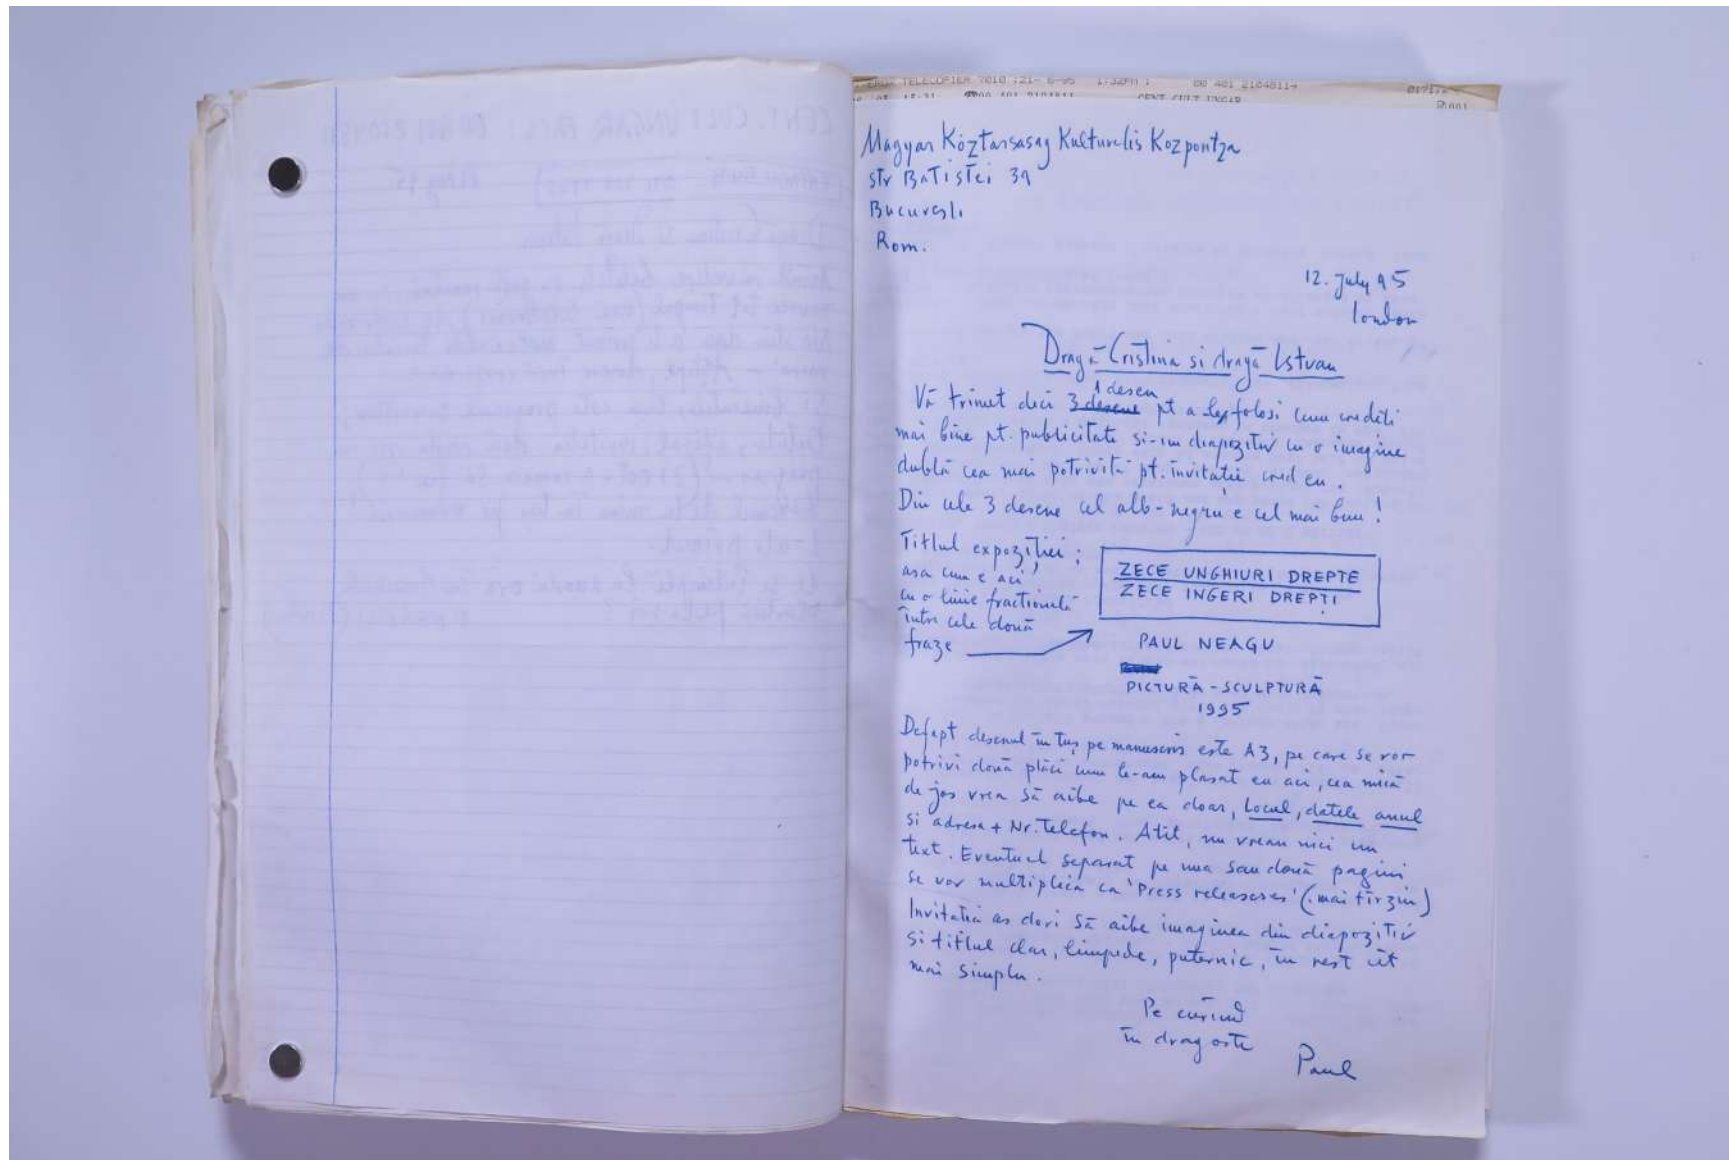 XEROX TELECOPIER 7010 :21- 6-95 1:32PM : 00 401 2104811→
00 401 2104811 CENT CULT UNGAR
Magyar Köztarsasag Kulturelis Kozpontza
str Batistei 39
Bucuresti
Rom.
12. July 95
London
Dragă Cristina si dragă Istvan
1 desen
Vă trimet deci 3 desene pt a le folosi cum credeti
mai bine pt. publicitate si-un diapozitiv cu o imagine
dublă cea mai potrivită pt. invitatie cred eu.
Din cele 3 desene cel alb-negru e cel mai bun!
Titlul expoziției:
asa cum e aci
cu o linie fractionelă
între cele două
fraze
ZECE UNGHIURI DREPTE
ZECE INGERI DREPȚI
PAUL NEAGU
PICTURĂ - SCULPTURĂ
1995
Defapt desenul în tuș pe manuscris este A3, pe care se vor
potrivi două plăci cum le-am plasat eu aci, cea mică
de jos vrea să aibe pe ea doar, locul, datele anul
si adresa + Nr. Telefon. Atit, nu vreau nici un
text. Eventual separat pe una sau două pagini
se vor multiplica ca 'press releases' (.mai tîrziu)
Invitatia as dori să aibe imaginea din diapozitiv
si titlul clar, limpede, puternic, în rest cît
mai simplu.
Pe curînd
în dragoste
Paul